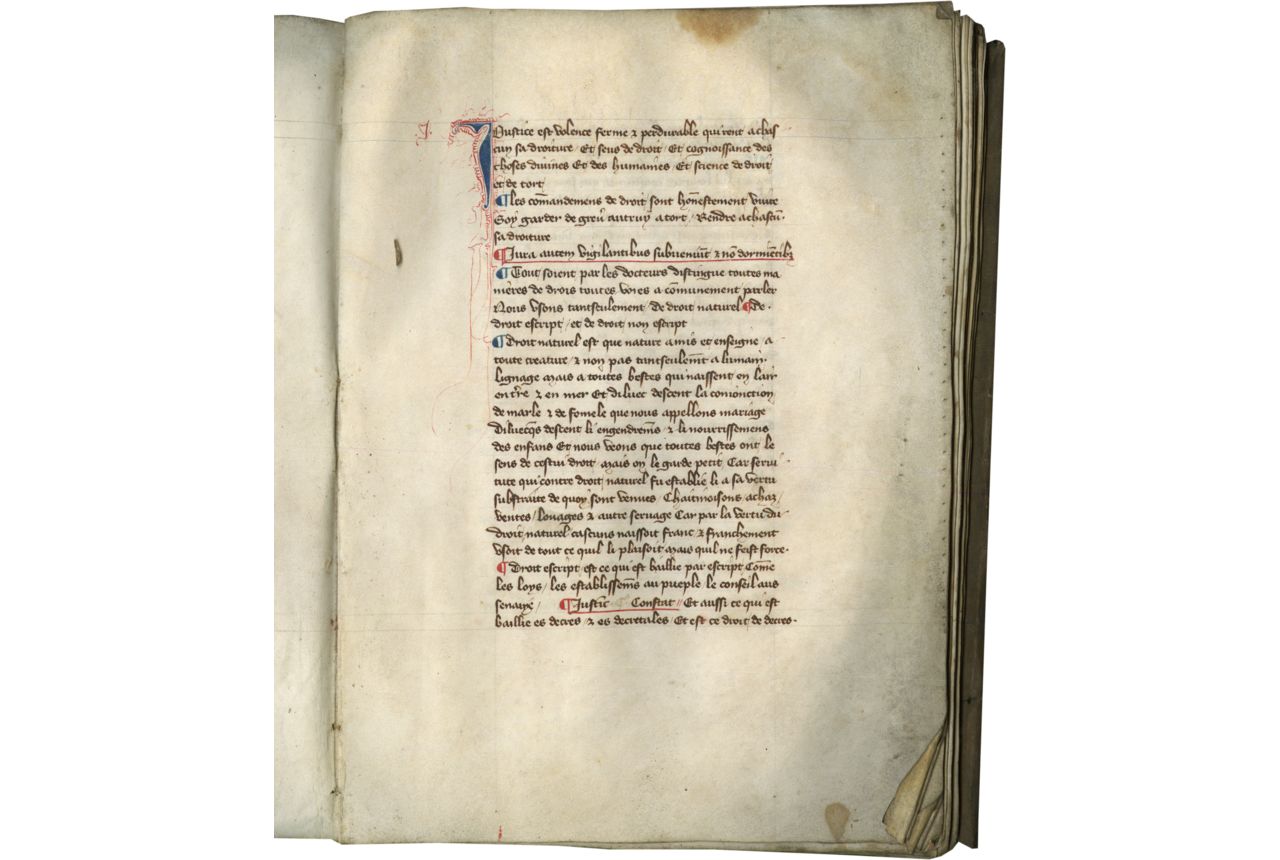 J.
Justice est volence ferme & perdurable qui rent a chas
cuy sa droiture / Et sens de droit / Et cognoissance des
choses divines Et des humaines / Et science de droit
et de tort
¶ Les com̄andemens de droit sont hon̄estement vivre
Soy garder de grev̄ autruy a tort / Rendre a chascū.
sa droiture
¶ Jura autem vigilantibus subveniūt & nō dormiētibꝫ
¶ Tout soient par les docteurs distingue toutes ma
nieres de drois toutes voies a cōmunement parler
Nous usons tantseulement / De droit naturel ¶ De.
droit escript / et de droit non escript
¶ Droit naturel est que nature a mis et enseigne a
toute creature / & non pas tantseulem̄t a lumain.
lignage mais a toutes bestes qui naissent en lair
en t̄re & en mer Et diluec descent la conionction
de marle & de fomele que nous appellons mariage
Diluecqs descent li engendrem̄s & li nourrissemens
des enfans Et nous veons que toutes bestes ont le
sens de cestui droit mais on le garde petit Car servi
tute qui contre droit naturel fu establie li a sa vertu
substraite de quoy sont venues / Chaitivoisons / achaz /
ventes / louages & autre servage Car par la vertu du
droit naturel cascuns naissoit franc & franchement
usoit de tout ce quil li plaisoit mais quil ne feist force.
¶ Droit escript est ce qui est baillie par escript Com̄e
les loys / les establissem̄s au pueple le conseil aus
senaux / ¶ Justic̄ Constat // Et aussi ce qui est
baillie es decres / & es decretales / Et est ce droit de decres.